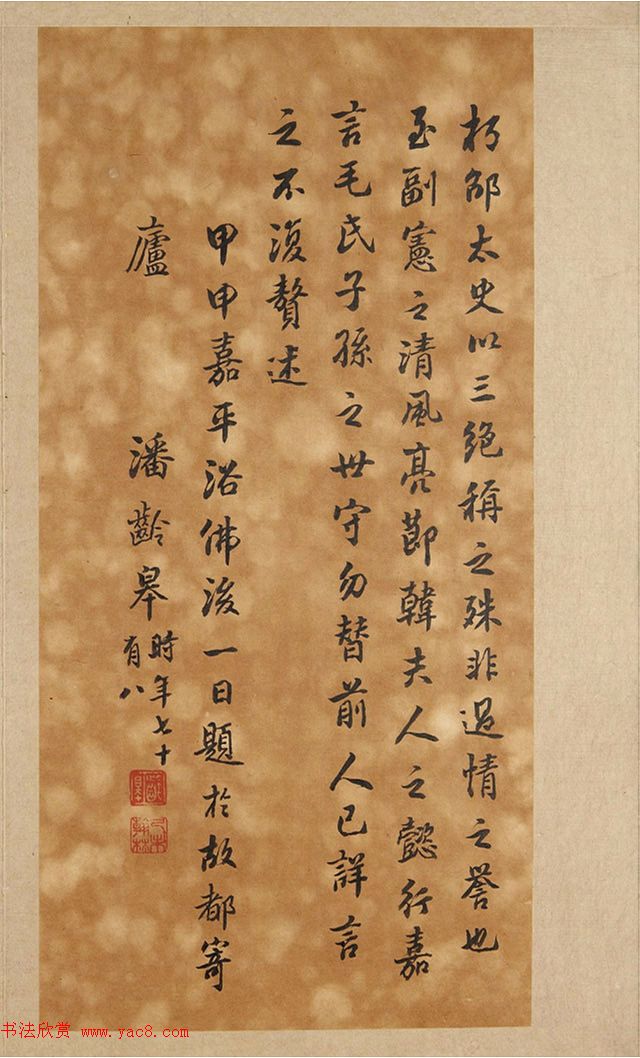 朽邹太史以三絕稱之殊非過情之譽也
至副憲之清風亮節韓夫人之懿行嘉
言毛氏子孫之世守勿替前人已詳言
之不復贅述
甲申嘉平浴佛後一日題於故都寄
廬 潘齡皋 時年七十
有八
书法欣赏 www.yac8.com